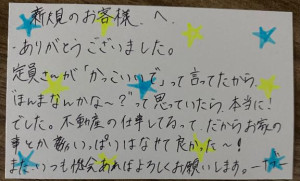 新規のお客様へ
ありがとうございました。
定員さんが「かっこいいで」って言ってたから、
"ほんまなんかな〜?"って思っていたら、本当に!
でした。不動産の仕事してるって、だからお家の
事とか いっぱいはなせて良かった〜!
また、いつか機会あればよろしくお願いします。